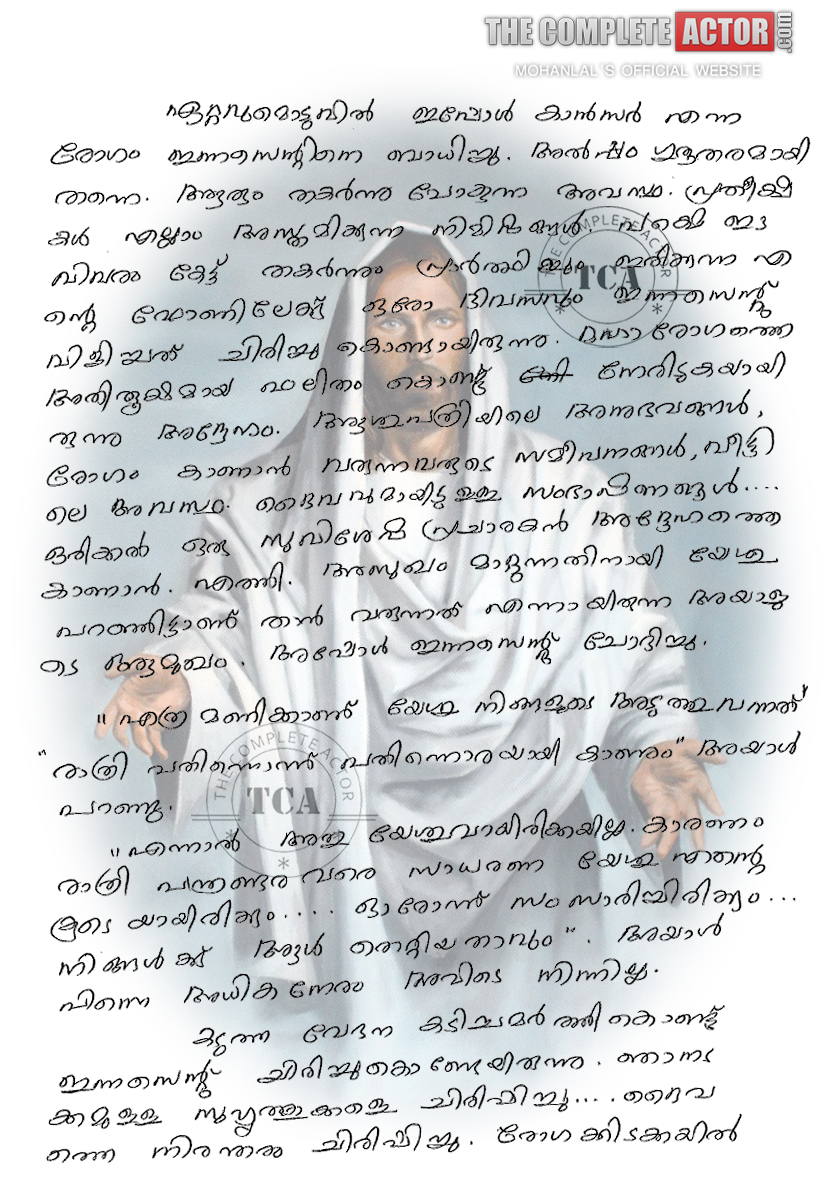 THE COMPLETE ACTOR.com
MOHANLAL'S OFFICIAL WEBSITE
ഏറ്റവുമൊടുവിൽ ഇപ്പോൾ കാൻസർ എന്ന
രോഗം ഇന്നസെന്റിനെ ബാധിച്ചു. അൽപ്പം ഗുരുതരമായി
തന്നെ. ആരും തകർന്നു പോകുന്ന അവസ്ഥ. പ്രതീക്ഷ
കൾ എല്ലാം അസ്തമിക്കുന്ന നിമിഷങ്ങൾ. പക്ഷെ ഈ
വിവരം കേട്ട് തകർന്നും പ്രാർത്ഥിച്ചും ഇരിക്കുന്ന എ
ന്റെ ഫോണിലേക്ക് ഒരോ ദിവസവും ഇന്നസെന്റ്
വിളിച്ചത് ചിരിച്ചു കൊണ്ടായിരുന്നു. മഹാരോഗത്തെ
അതിരൂക്ഷമായ ഫലിതം കൊണ്ട് നേരിടുകയായി
രുന്നു അദ്ദേഹം. ആശുപത്രിയിലെ അനുഭവങ്ങൾ,
രോഗം കാണാൻ വരുന്നവരുടെ സമീപനങ്ങൾ, വീട്ടി
ലെ അവസ്ഥ. ദൈവവുമായിട്ടുള്ള സംഭാഷണങ്ങൾ....
ഒരിക്കൽ ഒരു സുവിശേഷ പ്രചാരകൻ അദ്ദേഹത്തെ
കാണാൻ. എത്തി. അസുഖം മാറ്റുന്നതിനായി യേശു
പറഞ്ഞിട്ടാണ് താൻ വരുന്നത് എന്നായിരുന്നു അയാളു
ടെ ആമുഖം. അപ്പോൾ ഇന്നസെന്റ് ചോദിച്ചു.
"എത്ര മണിക്കാണ് യേശു നിങ്ങളുടെ അടുത്തുവന്നത്"
"രാത്രി പതിനൊന്ന് പതിനൊരയായി കാണും" അയാൾ
പറഞ്ഞു.
"എന്നാൽ അതു യേശുവായിരിക്കയില്ല. കാരണം
രാത്രി പന്ത്രണ്ടര വരെ സാധരണ യേശു എന്റെ
കൂടെ യായിരിക്കും.... ഓരോന്ന് സംസാരിച്ചിരിക്കും...
നിങ്ങൾക്ക് ആൾ തെറ്റിയതാവും". അയാൾ
പിന്നെ അധികനേരം അവിടെ നിന്നില്ല.
കടുത്ത വേദന കടിച്ചമർത്തി കൊണ്ട്
ഇന്നസെന്റ് ചിരിച്ചുകൊണ്ടേയിരുന്നു. ഞാനട
ക്കമുള്ള സുഹൃത്തുക്കളെ ചിരിപ്പിച്ചു.... ദൈവ
ത്തെ നിരന്തരം ചിരിപ്പിച്ചു. രോഗക്കിടക്കയിൽ
THE COMPLETE ACTOR
TCA
THE COMPLETE ACTOR
TCA